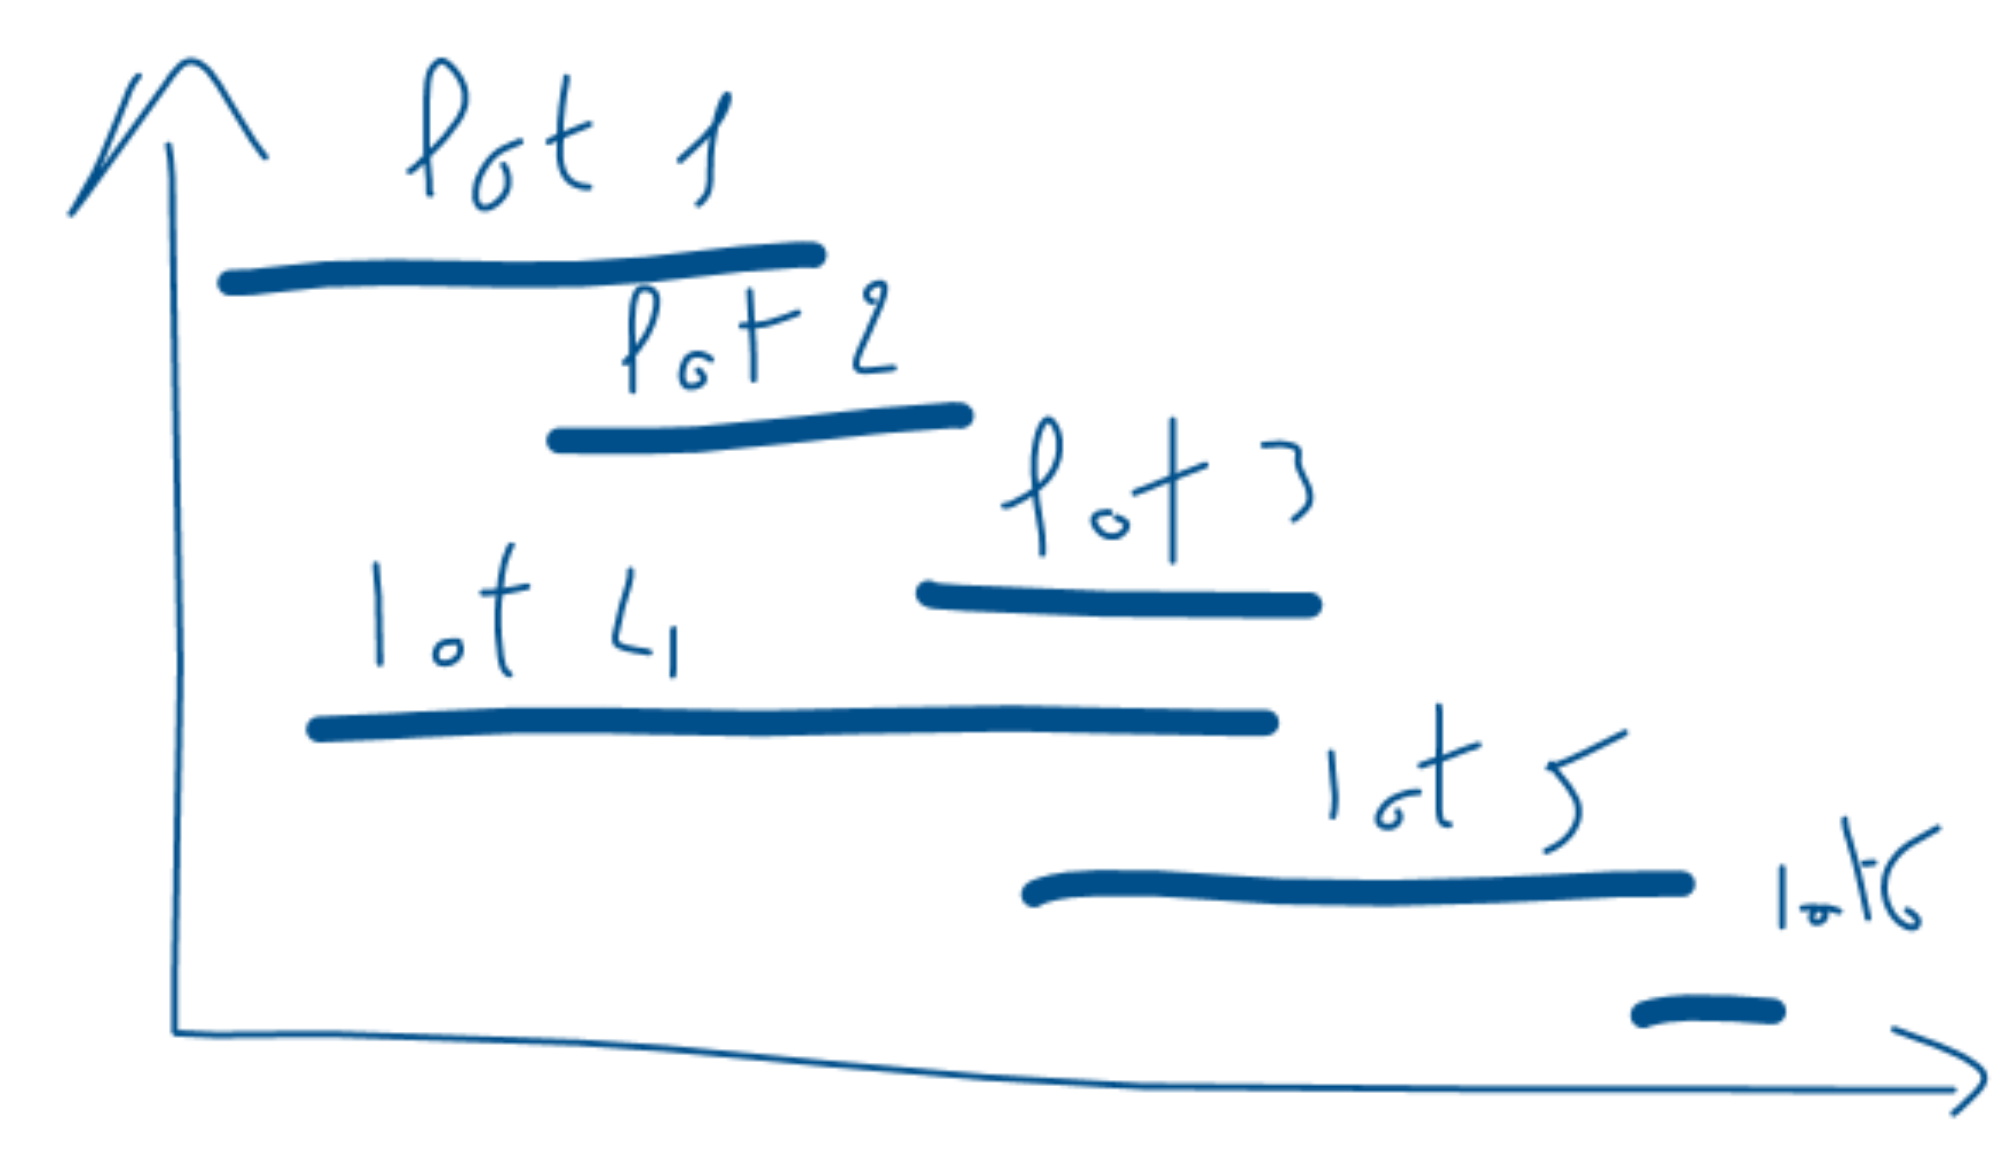 lot 1
lot 2
lot 3
lot 4
lot 5
lot 6